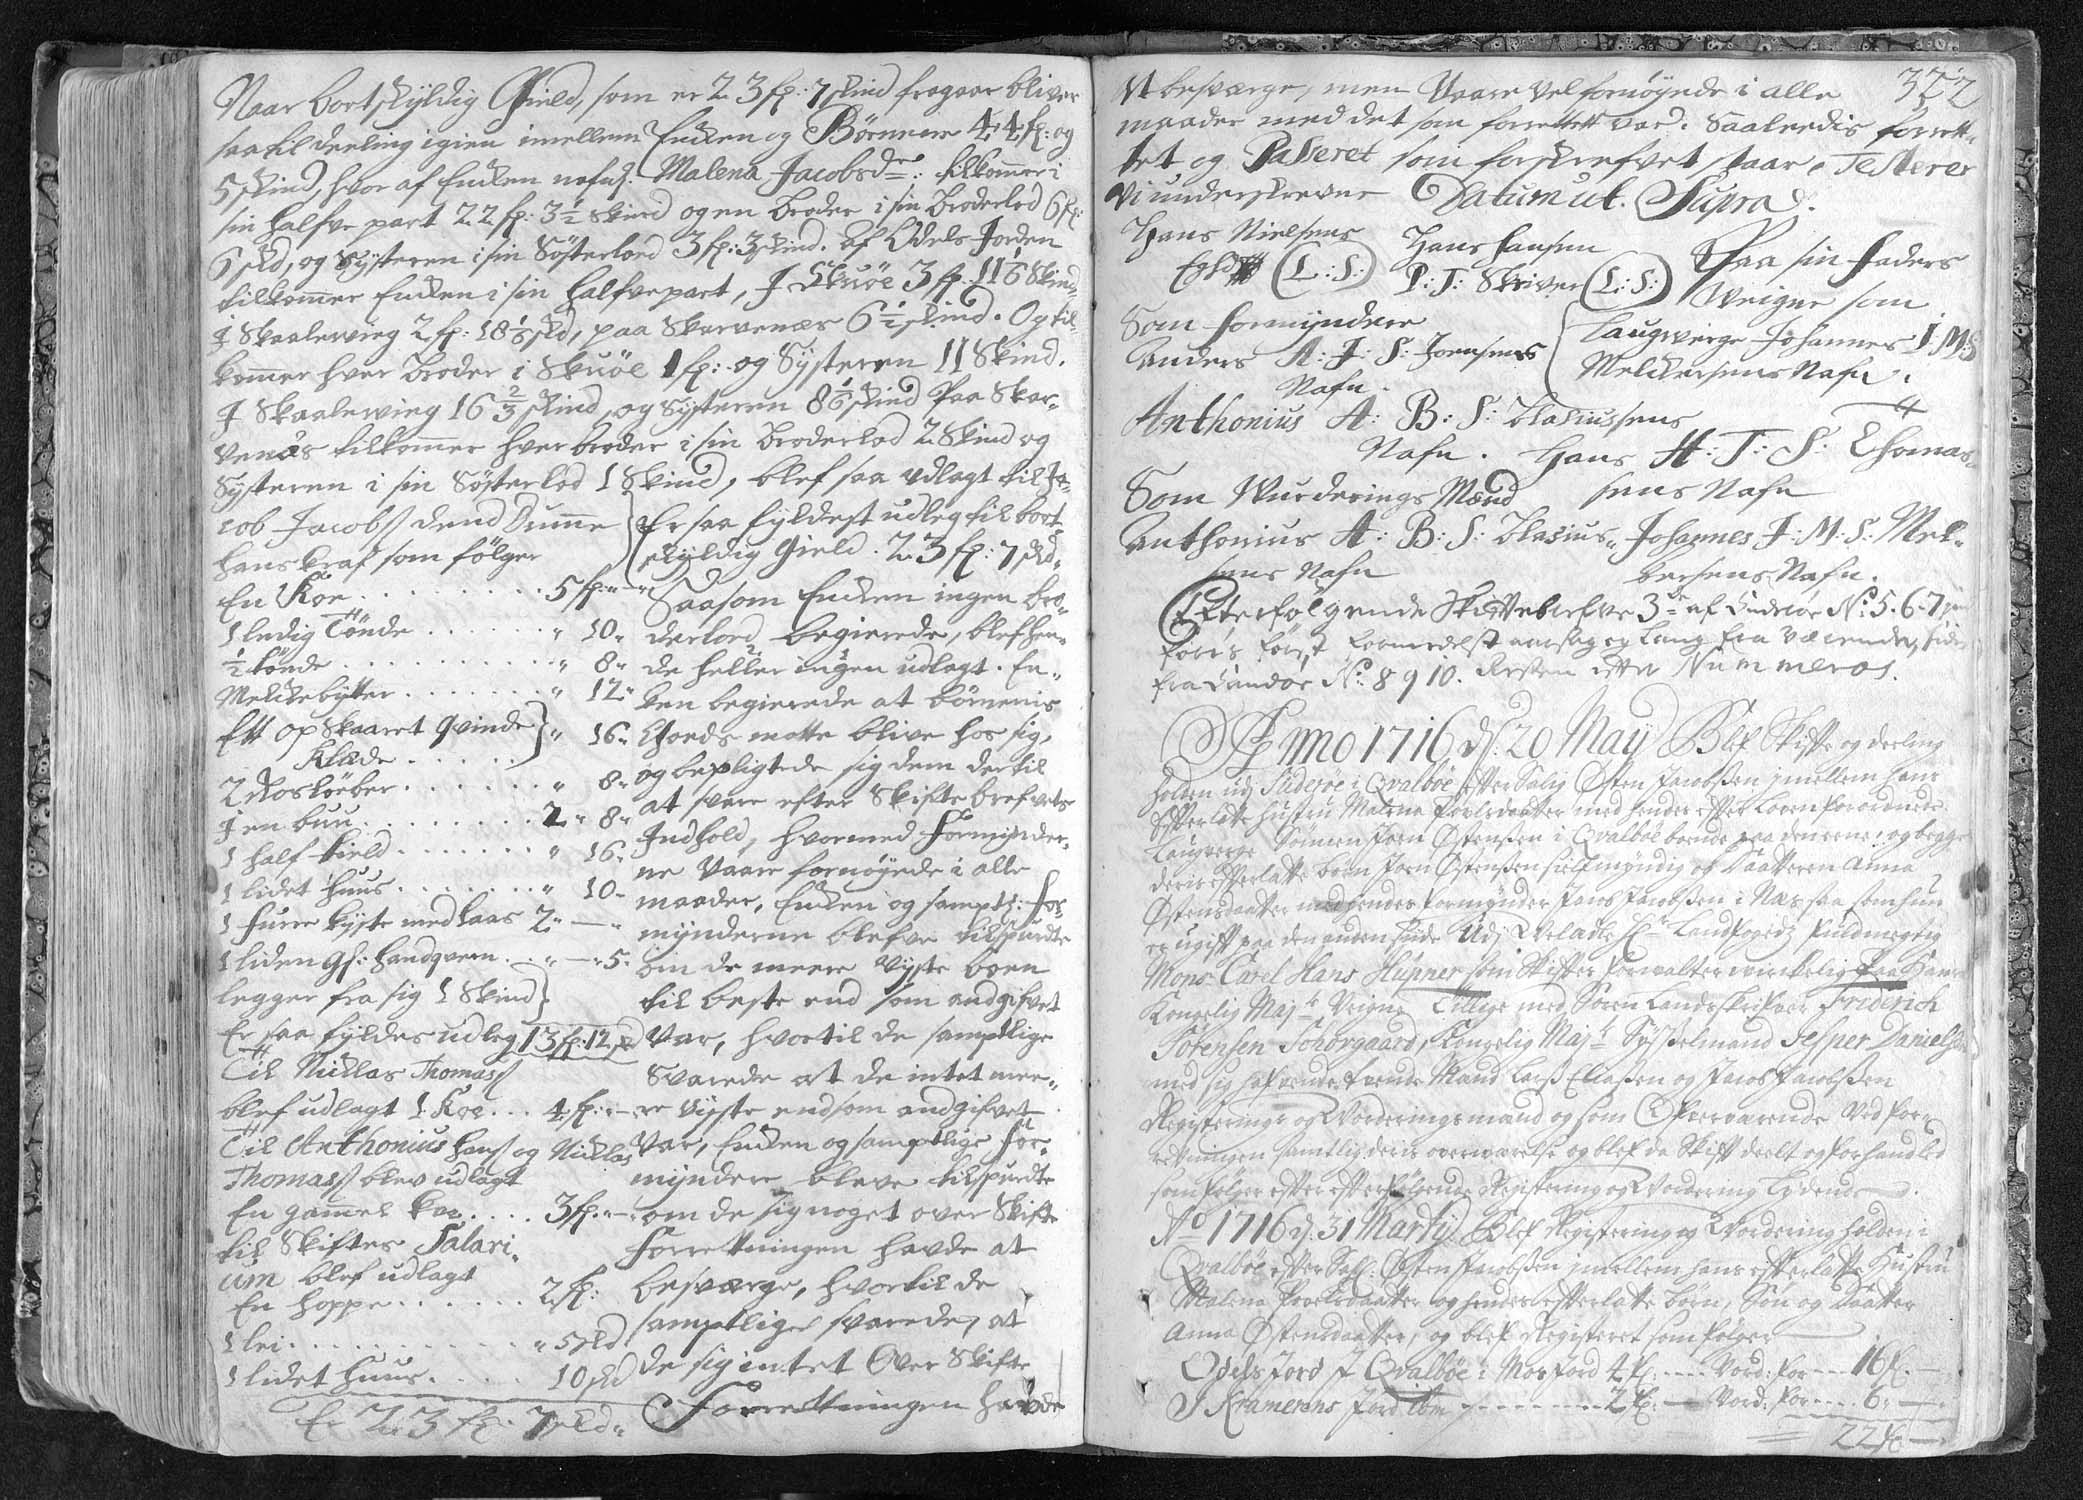 Naar bortskyldig Gield, som er 23 fl: 7 skind fragaar bliver
saa til deeling igien imellem Encken og Børnene 44 fl: og
5 skind, hvor af Encken nafnl. Malena Jacobsd: tilkommer i
sin halfve part 22 fl: 3½ skind og en broder i sin broderlod 6 fl:
6 skd, og Systeren i sin Søsterlod 3 fl: 3 skind. af Odels Jorden
tilkommer Encken i sin halfvepart, J Skuøe 3 fl: 11 skind
J Skaalewiig 2 fl: 18 skd, paa Skarvenæs 6½ skind. Og til-
kommer hver broder i Skuøe 1 fl: og Systeren 11 Skind.
J Skaalewiig 16⅔ skind, og Systeren 8 skind Paa Skar-
venæs tilkommer hver broder i sin broderlod 2 Skind og
Systeren i sin Søsterlod 1 Skind, blef saa udlagt til Ja-
cob Jacobs dend Dumme
hans kraf som følger
En Koe . . . . . . . . 5 fl: "
1 ledig Tønde . . . . . . " 10 "
½ tønde . . . . . . . . " 8 "
Melckebytter . . . . . . " 12 "
Ett opskaaret qvinde } " 16 "
Klæde . . . . .
2 Roskører . . . . . . " 8 "
J en buu . . . . . . . 2 " 8 "
1 half kield . . . . . . " 16 "
1 lidet huus . . . . . . " 10 -
1 furre kyste med laas 2 " — "
1 liden gl: handqvern . . " — 5.
legger fra sig 1 Skind }
Er saa fyldes udleg 13 fl: 12 s
Til Nicklas Thomass
blef udlagt 1 Koe . . . 4 fl: "
Til Anthonius Hans og Nicklas
Thomass blev udlagt
En gammel koe . . . . 3 fl: "
til Skiftes Salari-
um blef udlagt
En hoppe . . . . . . 2 fl:
1 lei . . . . . . . . . " 5 skd
1 lidet huus . . . . 10 skd
Er 23 fl: 7 skd "
Er saa fyldest udleg til bort-
skyldig Gield . 23 fl: 7 skd "
Saasom Encken ingen bro-
derlod begierede, blef hen-
de heller ingen udlagt. En-
ken begierede at børnenis
Goeds motte blive hos sig,
og bepligtede sig dem dertil
at svare efter Skiftebrefvets
Indhold, hvormed Formynder-
ne vaare fornøyede i alle
maader, Encken og samptl: for-
mynderne blefve tilspurdte
om de meere vyste boen
til beste end som andgifvet
var, hvortil de samptlige
Svarede at de intet mee-
re vyste end som andgifvet
var, Encken og samptlige For-
myndere bleve tilspurdte
om de sig noget over Skifte
Forrettningen havde at
besværge, hvortil de
samptlige svarede, at
de sig intet Over Skifte
Forrettningen havde
322
at besværge, men Vaare vel fornøyede i alle
maader med det som forrettet var. Saaleedis forrett-
tet og Passeret som forskrefvet staar, Testerer
vi underskrevne Datum ut Supra.
Hans Nielsens (L:S:)
Hans Hansen
P: T: Skriver (L:S:)
Paa sin Faders
Weigne som
Laugwerge Johannes I M:S
Melckersens Nafn.
Som Formyndere
Anders A: J: S: Joensens
Nafn.
Anthonius A: B: S: Blasiussens
Nafn. Hans H: T: S: Thomas-
sens Nafn
Som Wurderings Mænd
Anthonius A: B: S: Blasius- Johannes J: M: S: Mel-
sens Nafn
kersens Nafn.
Efterfølgende Skiftebrefve 3de af Suderøe No. 5. 6. 7
føris først formedelst aarsag og lang fra værende, siden
fra Sandøe No. 8 9 10. Resten efter Nummeros.
Anno 1716 d. 20 May Blef Skifte og deeling
holden udj Suderøe i Qvalbøe efter Salig Østen Jacobssen jmellem hans
Efterlatte Hustru Malena Povlsdaatter med hendes efter Loven forordnede
Laugverge Sønnen Joen Østenssen i Qvalbøe boende paa den eene, og begge
deris efterlatte børn Joen Østenssen sielfmyndig og Daatteren Anna
Østensdaatter med hendes formynder Jacob Jacobssen i Næs saa som hun
er ugift paa den anden side Udj Weladle Hr. Landfogedz fuldmegtig
Mons: Carel Hans Hüpner som Skiftes forwalter paa
Kongelig Maj:ts Veigne Tillige med Søren Landsskrifver Friderich
Sørensen Schorgaard, Kongelig Maj:ts Sysselmand Jesper Danielsen
med sig hafvende tvende Mænd Larss Eliassen og Jacob Jacobssen
Registerings og Worderings mænd og som Ofververende Ved forre
rettningen samtlig deris overværelse og blef da Skift deelt og forhandled
som følger efter efterfølgende Registering og Wordering Lydende.
Ao 1716 d: 31 Marty Blef Registering og Wordering holden i
Qvalbøe efter Sal: Østen Jacobssen jmellem hans efterlatte Hustru
Malena Povelsdaatter og hendes efterlatte børn, Søn og Daatter
Anna Østensdaatter, og blef Registeret som følger
Odels Jord J Qvalbøe i Mor Jord 4 fl: . . . Vord: for . . . 16 fl. —
J Kramerens Jord ibm . . . . . . . 2 fl: — Vord: for . . . 6: —
22 fl —